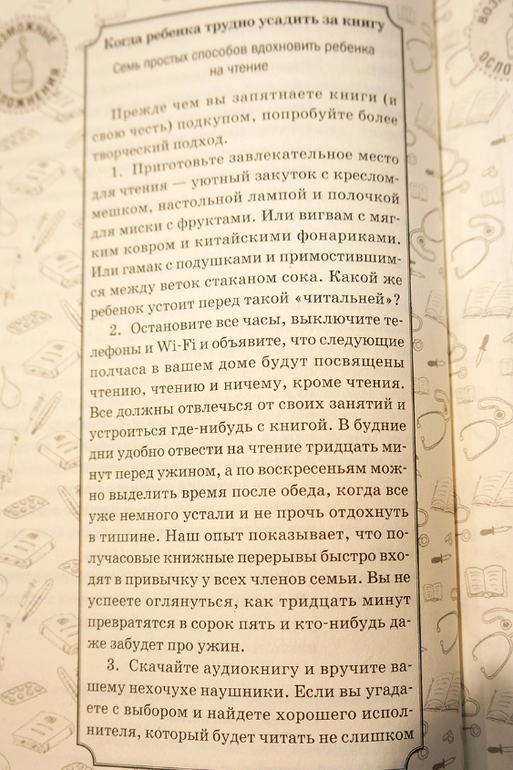 ВОЗМОЖНЫЕ
Когда ребенка трудно усадить за книгу
Семь простых способов вдохновить ребенка
на чтение
Прежде чем вы запятнаете книги (и
свою честь) подкупом, попробуйте более
творческий подход.
1. Приготовьте завлекательное место
для чтения — уютный закуток с креслом-
мешком, настольной лампой и полочкой
для миски с фруктами. Или вигвам с мяг-
ким ковром и китайскими фонариками.
Или гамак с подушками и примостившим-
ся между веток стаканом сока. Какой же
ребенок устоит перед такой «читальней»?
2. Остановите все часы, выключите те-
лефоны и Wi-Fi и объявите, что следующие
полчаса в вашем доме будут посвящены
чтению, чтению и ничему, кроме чтения.
Все должны отвлечься от своих занятий и
устроиться где-нибудь с книгой. В будние
дни удобно отвести на чтение тридцать ми-
нут перед ужином, а по воскресеньям мож-
но выделить время после обеда, когда все
уже немного устали и не прочь отдохнуть
в тишине. Наш опыт показывает, что по-
лучасовые книжные перерывы быстро вхо-
дят в привычку у всех членов семьи. Вы не
успеете оглянуться, как тридцать минут
превратятся в сорок пять и кто-нибудь да-
же забудет про ужин.
3. Скачайте аудиокнигу и вручите ва-
шему нехочухе наушники. Если вы угада-
ете с выбором и найдете хорошего испол-
нителя, который будет читать не слишком